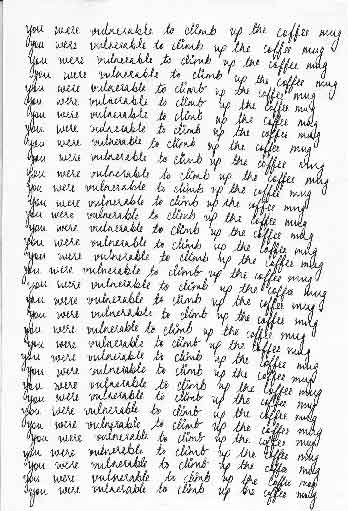 you were vulnerable to climb up the coffee mug
you were vulnerable to climb up the coffee mug
you were vulnerable to climb up the coffee mug
you were vulnerable to climb up the coffee mug
you were vulnerable to climb up the coffee mug
you were vulnerable to climb up the coffee mug
you were vulnerable to climb up the coffee mug
you were vulnerable to climb up the coffee mug
you were vulnerable to climb up the coffee mug
you were vulnerable to climb up the coffee mug
you were vulnerable to climb up the coffee mug
you were vulnerable to climb up the coffee mug
you were vulnerable to climb up the coffee mug
you were vulnerable to climb up the coffee mug
you were vulnerable to climb up the coffee mug
you were vulnerable to climb up the coffee mug
you were vulnerable to climb up the coffee mug
you were vulnerable to climb up the coffee mug
you were vulnerable to climb up the coffee mug
you were vulnerable to climb up the coffee mug
you were vulnerable to climb up the coffee mug
you were vulnerable to climb up the coffee mug
you were vulnerable to climb up the coffee mug
you were vulnerable to climb up the coffee mug
you were vulnerable to climb up the coffee mug
you were vulnerable to climb up the coffee mug
you were vulnerable to climb up the coffee mug
you were vulnerable to climb up the coffee mug
you were vulnerable to climb up the coffee mug
you were vulnerable to climb up the coffee mug
you were vulnerable to climb up the coffee mug
you were vulnerable to climb up the coffee mug
you were vulnerable to climb up the coffee mug